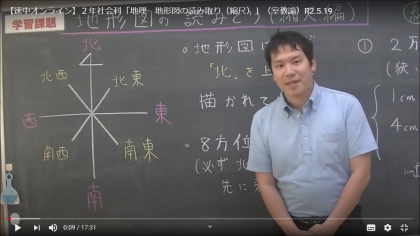 【速中オンライン】２年社会科「地理　地形図の読み取り（縮尺）」（室教諭）R2.5.19
学習課題
地形図の読みとり(縮尺編)
北
北西
北東
西
東
南西
南東
南
・地形図は
「北」を上
描かれて
・8方位
(必ず北
先に
① 2万
(狭い
1cm
4cm
0:09 / 17:31